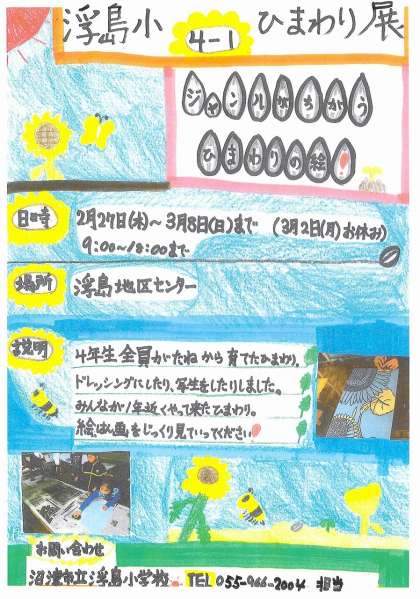 浮島小 4-1 ひまわり展
ジャンルがちがう
ひまわりの絵!
日時 2月27日(木)~3月8日(日)まで (3月2日(月)お休み)
9:00~18:00まで
場所 浮島地区センター
説明 4年生全員がたねから育てたひまわり。
ドレッシングにしたり、写生をしたりしました。
みんなが1年近くやって来たひまわり。
絵はん画をじっくり見ていってください!
お問い合わせ
沼津市立浮島小学校 TEL 055-966-2004 担当